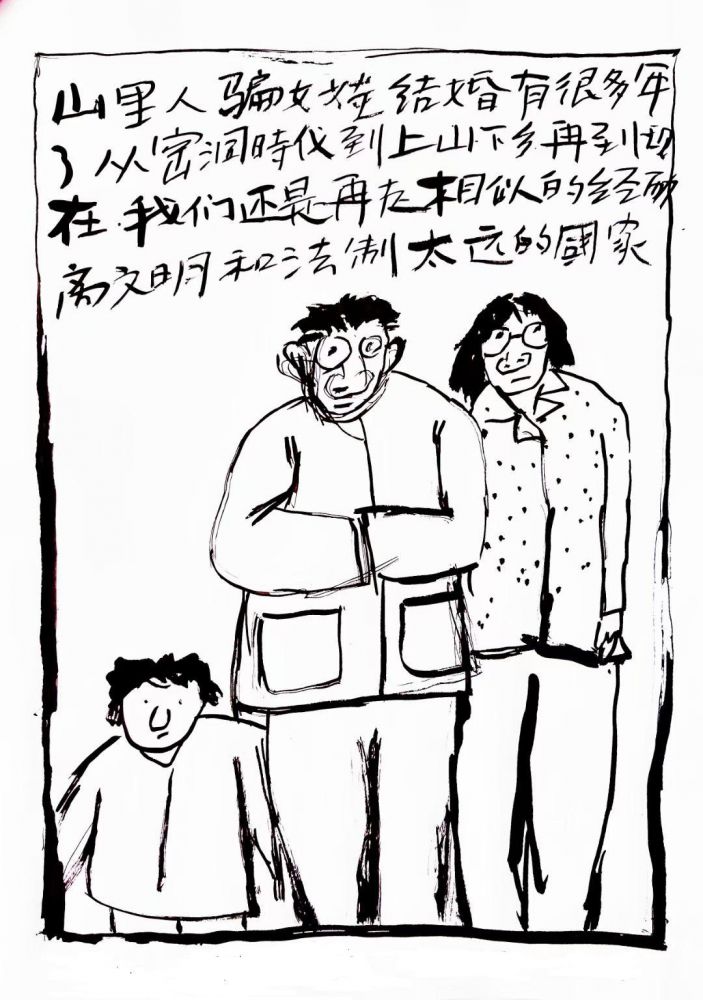 山里人骗女娃结婚有很多年
了从窑洞時代到上山下乡再到现
在我们还是再走相似的经历
离文明和法制太远的國家